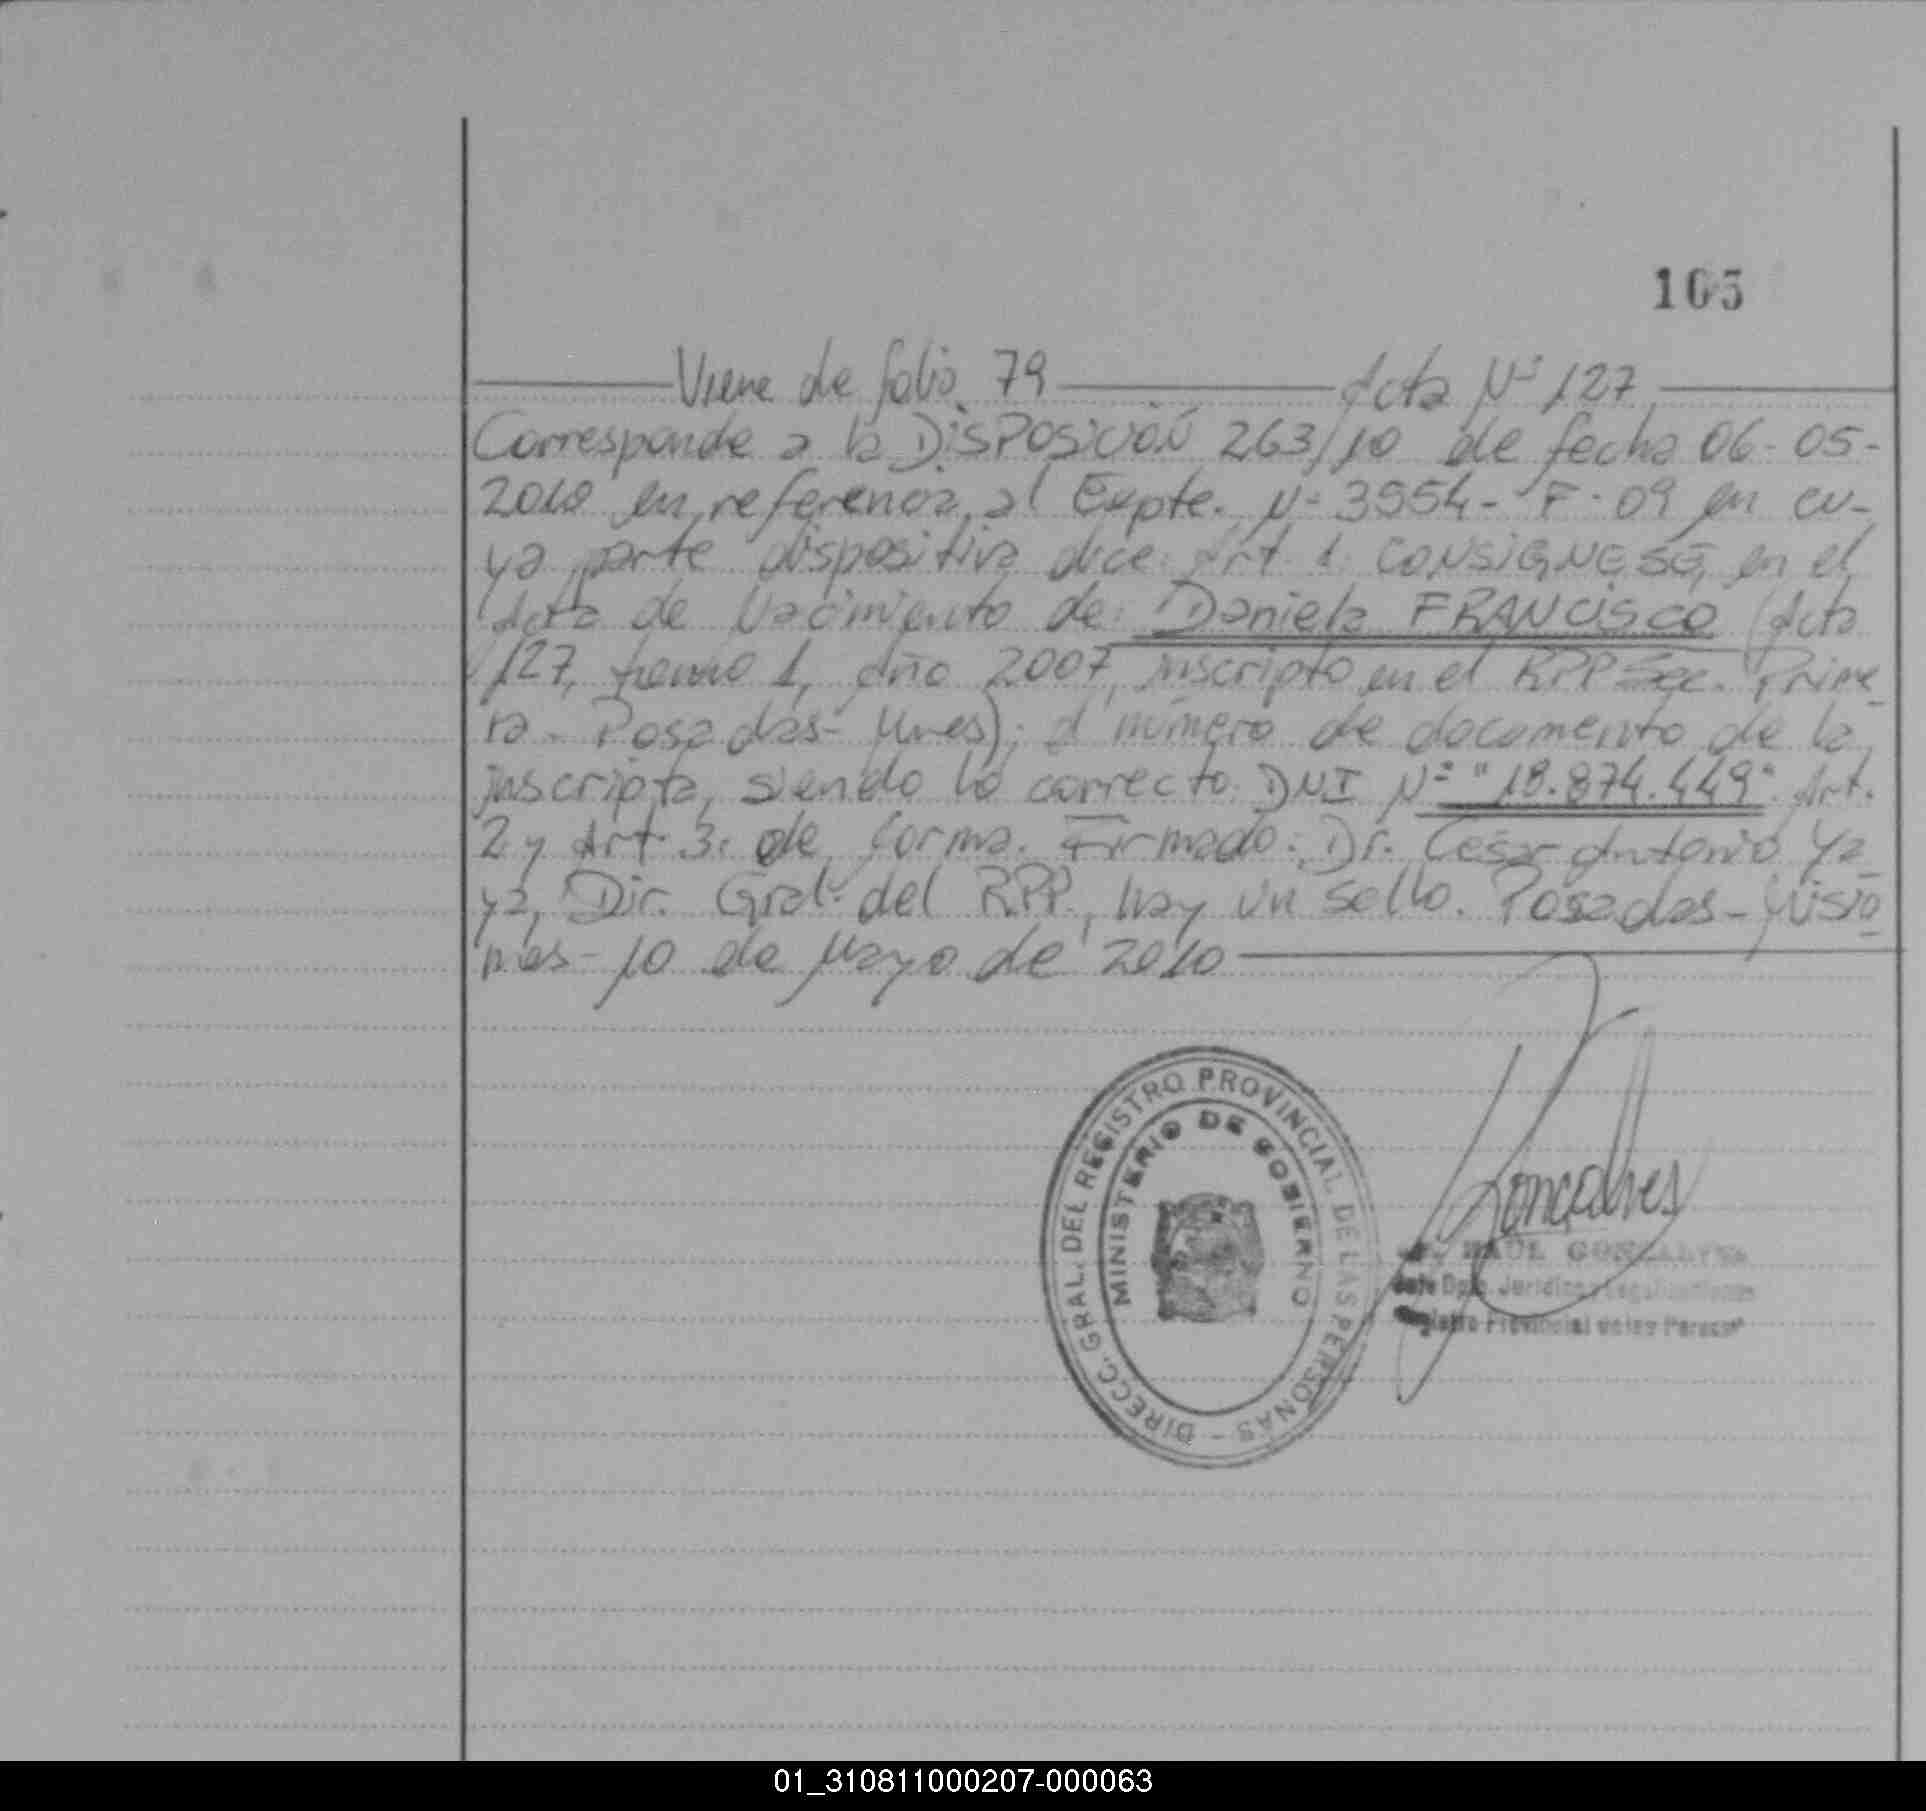 105
Viene de folio 79 Acta Nº 127
Corresponde a la DISPOSICIÓN 263/10 de fecha 06-05-
2010 en referencia al Expte. Nº 3954-F-09 en cu-
ya parte dispositiva dice: Art. 1: CONSIGNESE, en el
Acta de Nacimiento de: Daniela FRANCISCO (Acta
127, tomo 1, año 2007, inscripto en el RPP Sec. Prime-
ra - Posadas - Mnes); el número de documento de la
inscripta, siendo lo correcto: DNI Nº "18.874.449". Art.
2 y Art. 3: de forma. Firmado: Dr. César Antonio Ya-
ya, Dir. Gral. del RPP, hay un sello. Posadas - Misio-
nes - 10 de Mayo de 2010
DIRECC. GRAL. DEL REGISTRO PROVINCIAL DE LAS PERSONAS -
MINISTERIO DE GOBIERNO
Goncalves
RAÚL GONCALVES
Jefe Dpto. Jurídico y Legalizaciones
Registro Provincial de las Personas
01_310811000207-000063